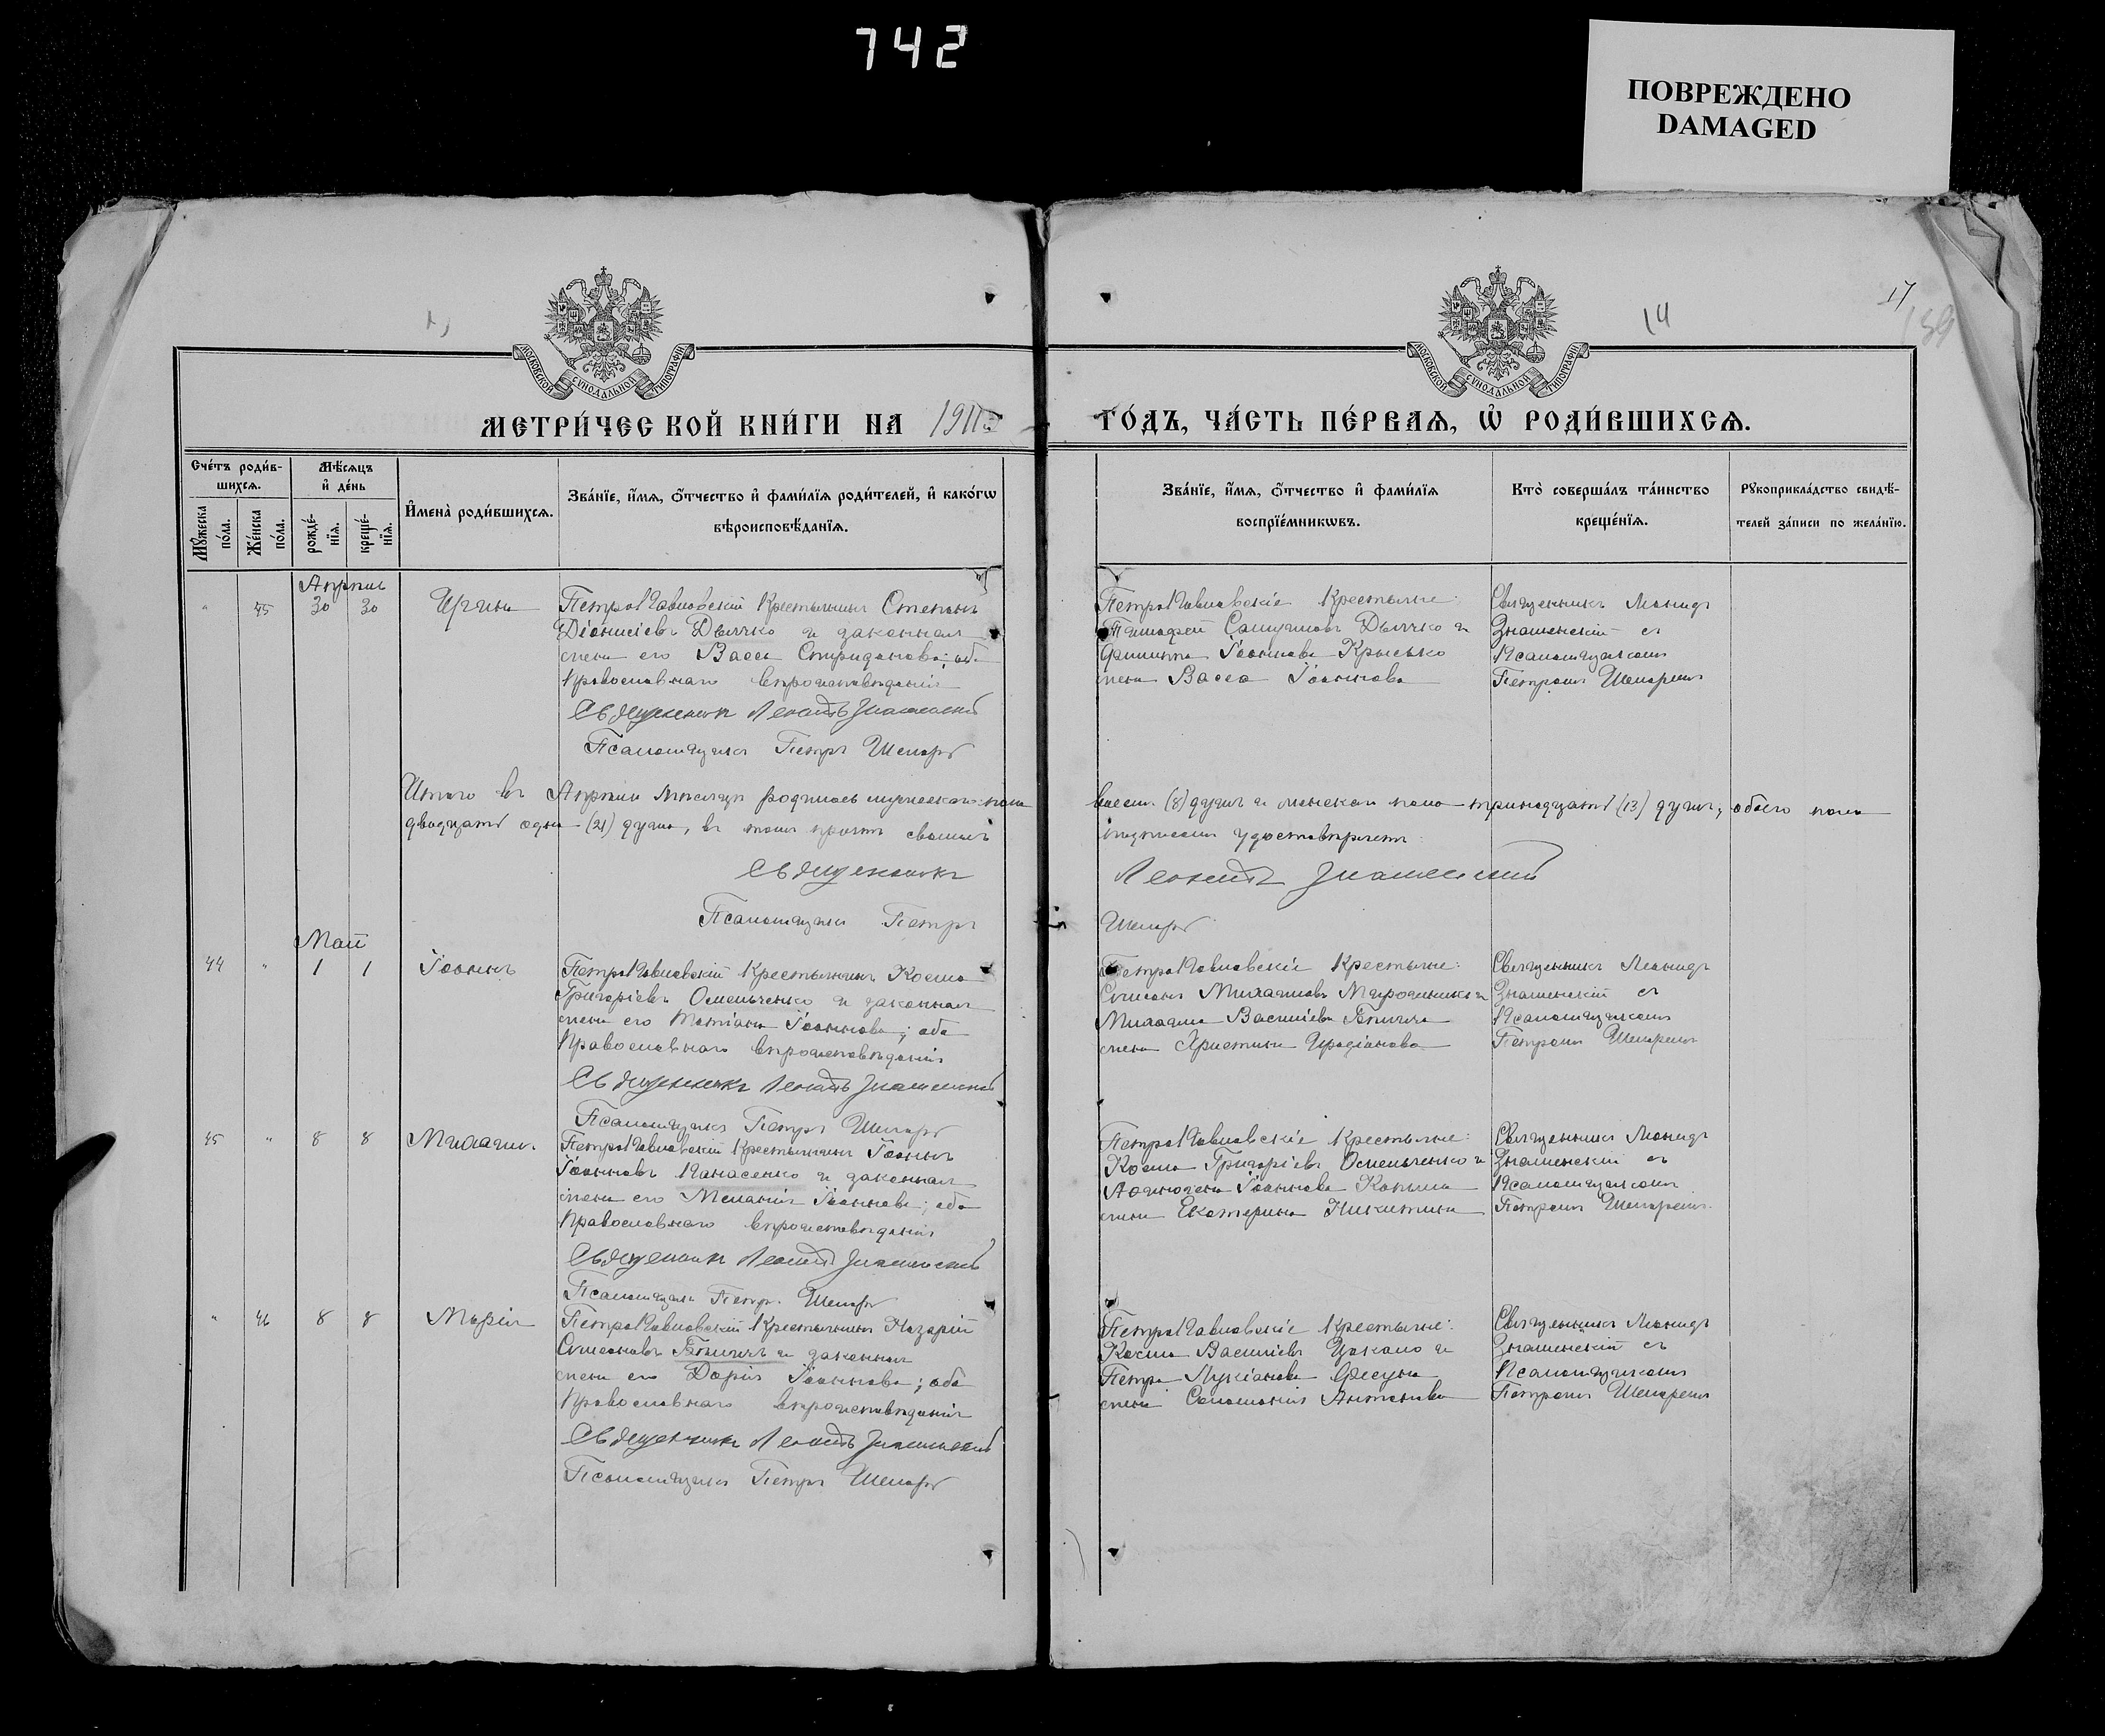 742
ПОВРЕЖДЕНО
DAMAGED
14
17
159
МОСКОВСКОЙ СУНОДАЛЬНОЙ ТИПОГРАФІИ
МОСКОВСКОЙ СУНОДАЛЬНОЙ ТИПОГРАФІИ
МЕТРИ́ЧЕСКОЙ КНИ́ГИ НА 1911й
ГО́ДЪ, ЧА́СТЬ ПЕ́РВАѦ, Ѡ҆ РОДИ́ВШИХСѦ.
Сче́тъ роди́в-
шихсѧ.
Мꙋ́жеска по́ла.
Же́нска по́ла.
Мѣ́сѧцъ
и҆ де́нь
рожде́-нїѧ.
креще́-нїѧ.
И҆мена̀ роди́вшихсѧ.
Зва́нїе, и҆́мѧ, ѻ҆́тчество и҆ фами́лїѧ роди́телей, и҆ како́гѡ
вѣроисповѣ́данїѧ.
Зва́нїе, и҆́мѧ, ѻ҆́тчество и҆ фами́лїѧ
воспрїе́мникѡвъ.
Кто̀ соверша́лъ та́инство
креще́нїѧ.
Рꙋкоприкла́дство свидѣ́-
телей за́писи по жела́нїю.
Апрѣль
" 45 30 30 Ирина
ПетроПавловскій Крестьянинъ Стефанъ
Діонисіевъ Дьячко и законная
жена его Васса Спиридонова; оба
Православнаго вѣроисповѣданія
Священникъ Леонидъ Знаменскій
Псаломщикъ Петръ Шепаръ
ПетроПавловскіе Крестьяне:
Тимофей Дьячко и
Филиппа Іоаннова Крысько
жена Васса Іоаннова
Священникъ Леонидъ
Знаменскій съ
Псаломщикомъ
Петромъ Шепаремъ
Итого въ Апрѣлѣ мѣсяцѣ родилось мужескаго пола
восемь (8) душъ и женскаго пола тринадцать (13) душъ, обоего пола
двадцать одна (21) душа, въ томъ своимъ
подписомъ удостовѣряетъ
Священникъ
Леонидъ Знаменскій
Псаломщикъ Петръ
Шепаръ
Май
44 " 1 1 Іоаннъ
ПетроПавловскій Крестьянинъ Косма
Григоріевъ Омельченко и законная
жена его Татіана Іоаннова; оба
Православнаго вѣроисповѣданія
Священникъ Леонидъ Знаменскій
Псаломщикъ Петръ Шепаръ
ПетроПавловскіе Крестьяне:
Симеонъ Михаиловъ Мирошникъ и
Михаила Васильева Бѣлича
жена Христина Иродіонова
Священникъ Леонидъ
Знаменскій съ
Псаломщикомъ
Петромъ Шепаремъ
45 " 8 8 Михаилъ
ПетроПавловскій Крестьянинъ Іоаннъ
Іоанновъ Панасенко и законная
жена его Меланія Іоаннова; оба
Православнаго вѣроисповѣданія
Священникъ Леонидъ Знаменскій
Псаломщикъ Петръ Шепаръ
ПетроПавловскіе Крестьяне:
Косма Григоріевъ Омельченко и
Іоаннова
жена Екатерина Никитина
Священникъ Леонидъ
Знаменскій съ
Псаломщикомъ
Петромъ Шепаремъ
" 46 8 8 Марія
ПетроПавловскій Крестьянинъ Назарій
Симеоновъ Бѣличъ и законная
жена его Дарія Іоаннова; оба
Православнаго вѣроисповѣданія
Священникъ Леонидъ Знаменскій
Псаломщикъ Петръ Шепаръ
ПетроПавловскіе Крестьяне:
Косма Васильевъ Цокало и
Петра Лукіанова
жена Соломонія Антонова
Священникъ Леонидъ
Знаменскій съ
Псаломщикомъ
Петромъ Шепаремъ